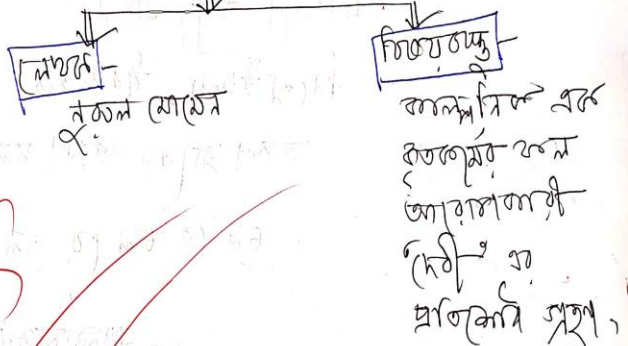 লেখক -
নুরুল মোমেন
বিষয়বস্তু -
কাল্পনিক এক
কৃতকর্মের ফল
আরোপকারী
দেবী এর
প্রতিশোধ গ্রহণ,